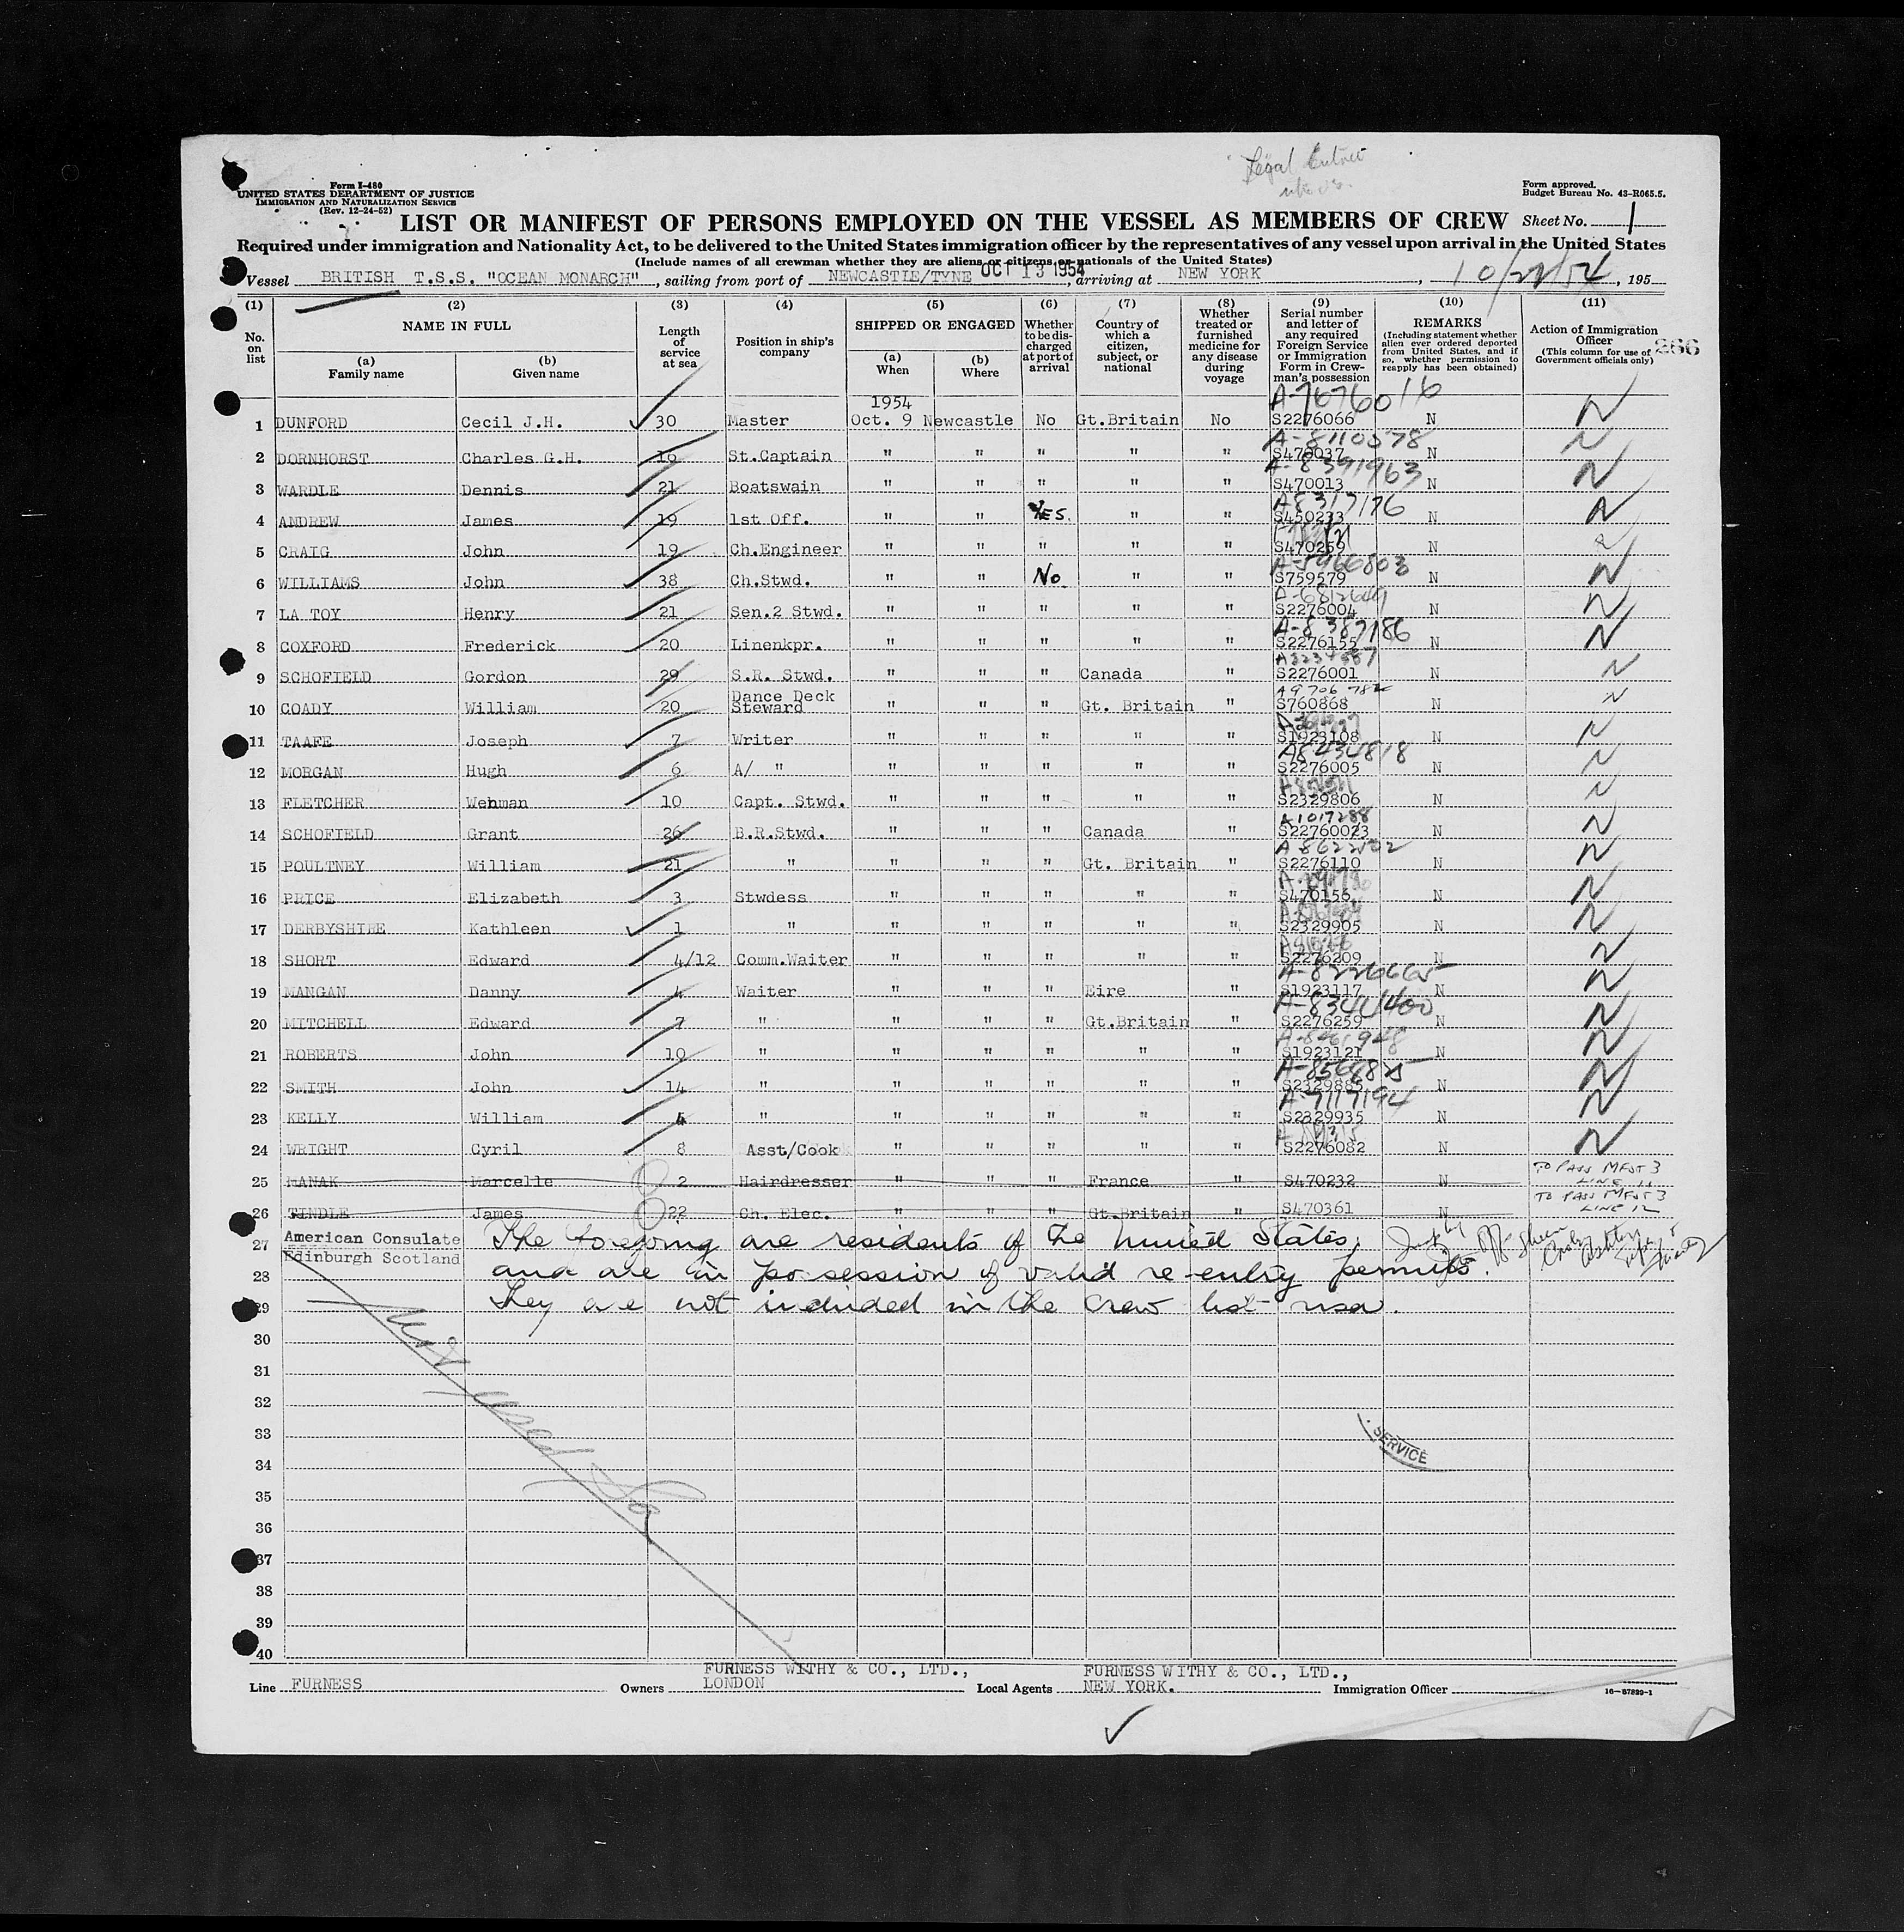 Legal
Form I-480
UNITED STATES DEPARTMENT OF JUSTICE
IMMIGRATION AND NATURALIZATION SERVICE
(Rev. 12-24-52)
Form approved.
Budget Bureau No. 43-R065.5.
LIST OR MANIFEST OF PERSONS EMPLOYED ON THE VESSEL AS MEMBERS OF CREW Sheet No. 1
Required under immigration and Nationality Act, to be delivered to the United States immigration officer by the representatives of any vessel upon arrival in the United States
(Include names of all crewman whether they are aliens or citizens or nationals of the United States)
Vessel BRITISH T.S.S. "OCEAN MONARCH", sailing from port of NEWCASTLE/TYNE OCT 13 1954, arriving at NEW YORK, 10/22/54, 195
(1) No. on list
(2) NAME IN FULL (a) Family name (b) Given name
(3) Length of service at sea
(4) Position in ship's company
(5) SHIPPED OR ENGAGED (a) When (b) Where
(6) Whether to be discharged at port of arrival
(7) Country of which a citizen, subject, or national
(8) Whether treated or furnished medicine for any disease during voyage
(9) Serial number and letter of any required Foreign Service or Immigration Form in Crewman's possession
(10) REMARKS (Including statement whether alien ever ordered deported from United States, and if so, whether permission to reapply has been obtained)
(11) Action of Immigration Officer (This column for use of Government officials only)
266
1954
A-7676016
1 DUNFORD Cecil J.H. 30 Master Oct. 9 Newcastle No Gt.Britain No S2276066 N N
A-8110078
2 DORNHORST Charles G.H. 16 St.Captain " " " " " S470037 N N
A-8391963
3 WARDLE Dennis 21 Boatswain " " " " " S470013 N N
A8317176
4 ANDREW James 19 1st Off. " " YES. " " S450233 N N
5 CRAIG John 19 Ch.Engineer " " " " " S470259 N
A-5966803
6 WILLIAMS John 38 Ch.Stwd. " " No. " " S759579 N N
7 LA TOY Henry 21 Sen.2 Stwd. " " " " " S2276004 N N
A-8387186
8 COXFORD Frederick 20 Linenkpr. " " " " " S2276155 N N
9 SCHOFIELD Gordon 29 S.R. Stwd. " " " Canada " S2276001 N N
A9 706 782
10 COADY William 20 Dance Deck Steward " " " Gt. Britain " S760868 N N
11 TAAFE Joseph 7 Writer " " " " " S1923108 N N
A8434818
12 MORGAN Hugh 6 A/ " " " " " " S2276005 N N
13 FLETCHER Wehman 10 Capt. Stwd. " " " " " S2329806 N N
A1017288
14 SCHOFIELD Grant 26 B.R.Stwd. " " " Canada " S22760023 N N
15 POULTNEY William 21 " " " " Gt. Britain " S2276110 N N
16 PRICE Elizabeth 3 Stwdess " " " " " S470156 N N
17 DERBYSHIRE Kathleen 1 " " " " " " S2329905 N N
18 SHORT Edward 4/12 Comm.Waiter " " " " " S2276209 N N
A-8226665
19 MANGAN Danny 4 Waiter " " " Eire " S1923117 N N
A-8344400
20 MITCHELL Edward 7 " " " " Gt.Britain " S2276259 N N
A-8461948
21 ROBERTS John 10 " " " " " " S1923121 N N
22 SMITH John 14 " " " " " " S2329885 N N
A-7117194
23 KELLY William 5 " " " " " " S2329935 N N
24 WRIGHT Cyril 8 Asst/Cook " " " " " S2276082 N N
25 MANAK Marcelle 2 Hairdresser " " " France " S470232 N TO PASS MFST 3 LINE 11
26 TINDLE James 22 Ch. Elec. " " " Gt.Britain " S470361 N TO PASS MFST 3 LINE 12
27 American Consulate The foregoing are residents of the United States,
Edinburgh Scotland
28 and are in possession of valid re-entry permits.
29 They are not included in the crew list visa.
30
31
32
33
34
SERVICE
35
36
37
38
39
40
Line FURNESS Owners FURNESS WITHY & CO., LTD., LONDON Local Agents FURNESS WITHY & CO., LTD., NEW YORK. Immigration Officer
16—67829-1